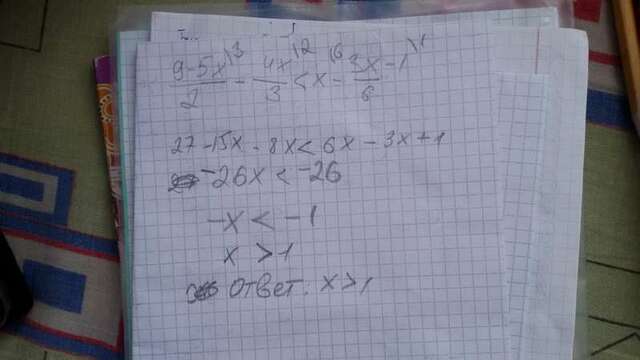 (9-5x)/2 \3 - 4x/3 \2 < x \6 - (3x-1)/6 \1
27-15x-8x<6x-3x+1
-26x<-26
-x<-1
x>1
Ответ: x>1